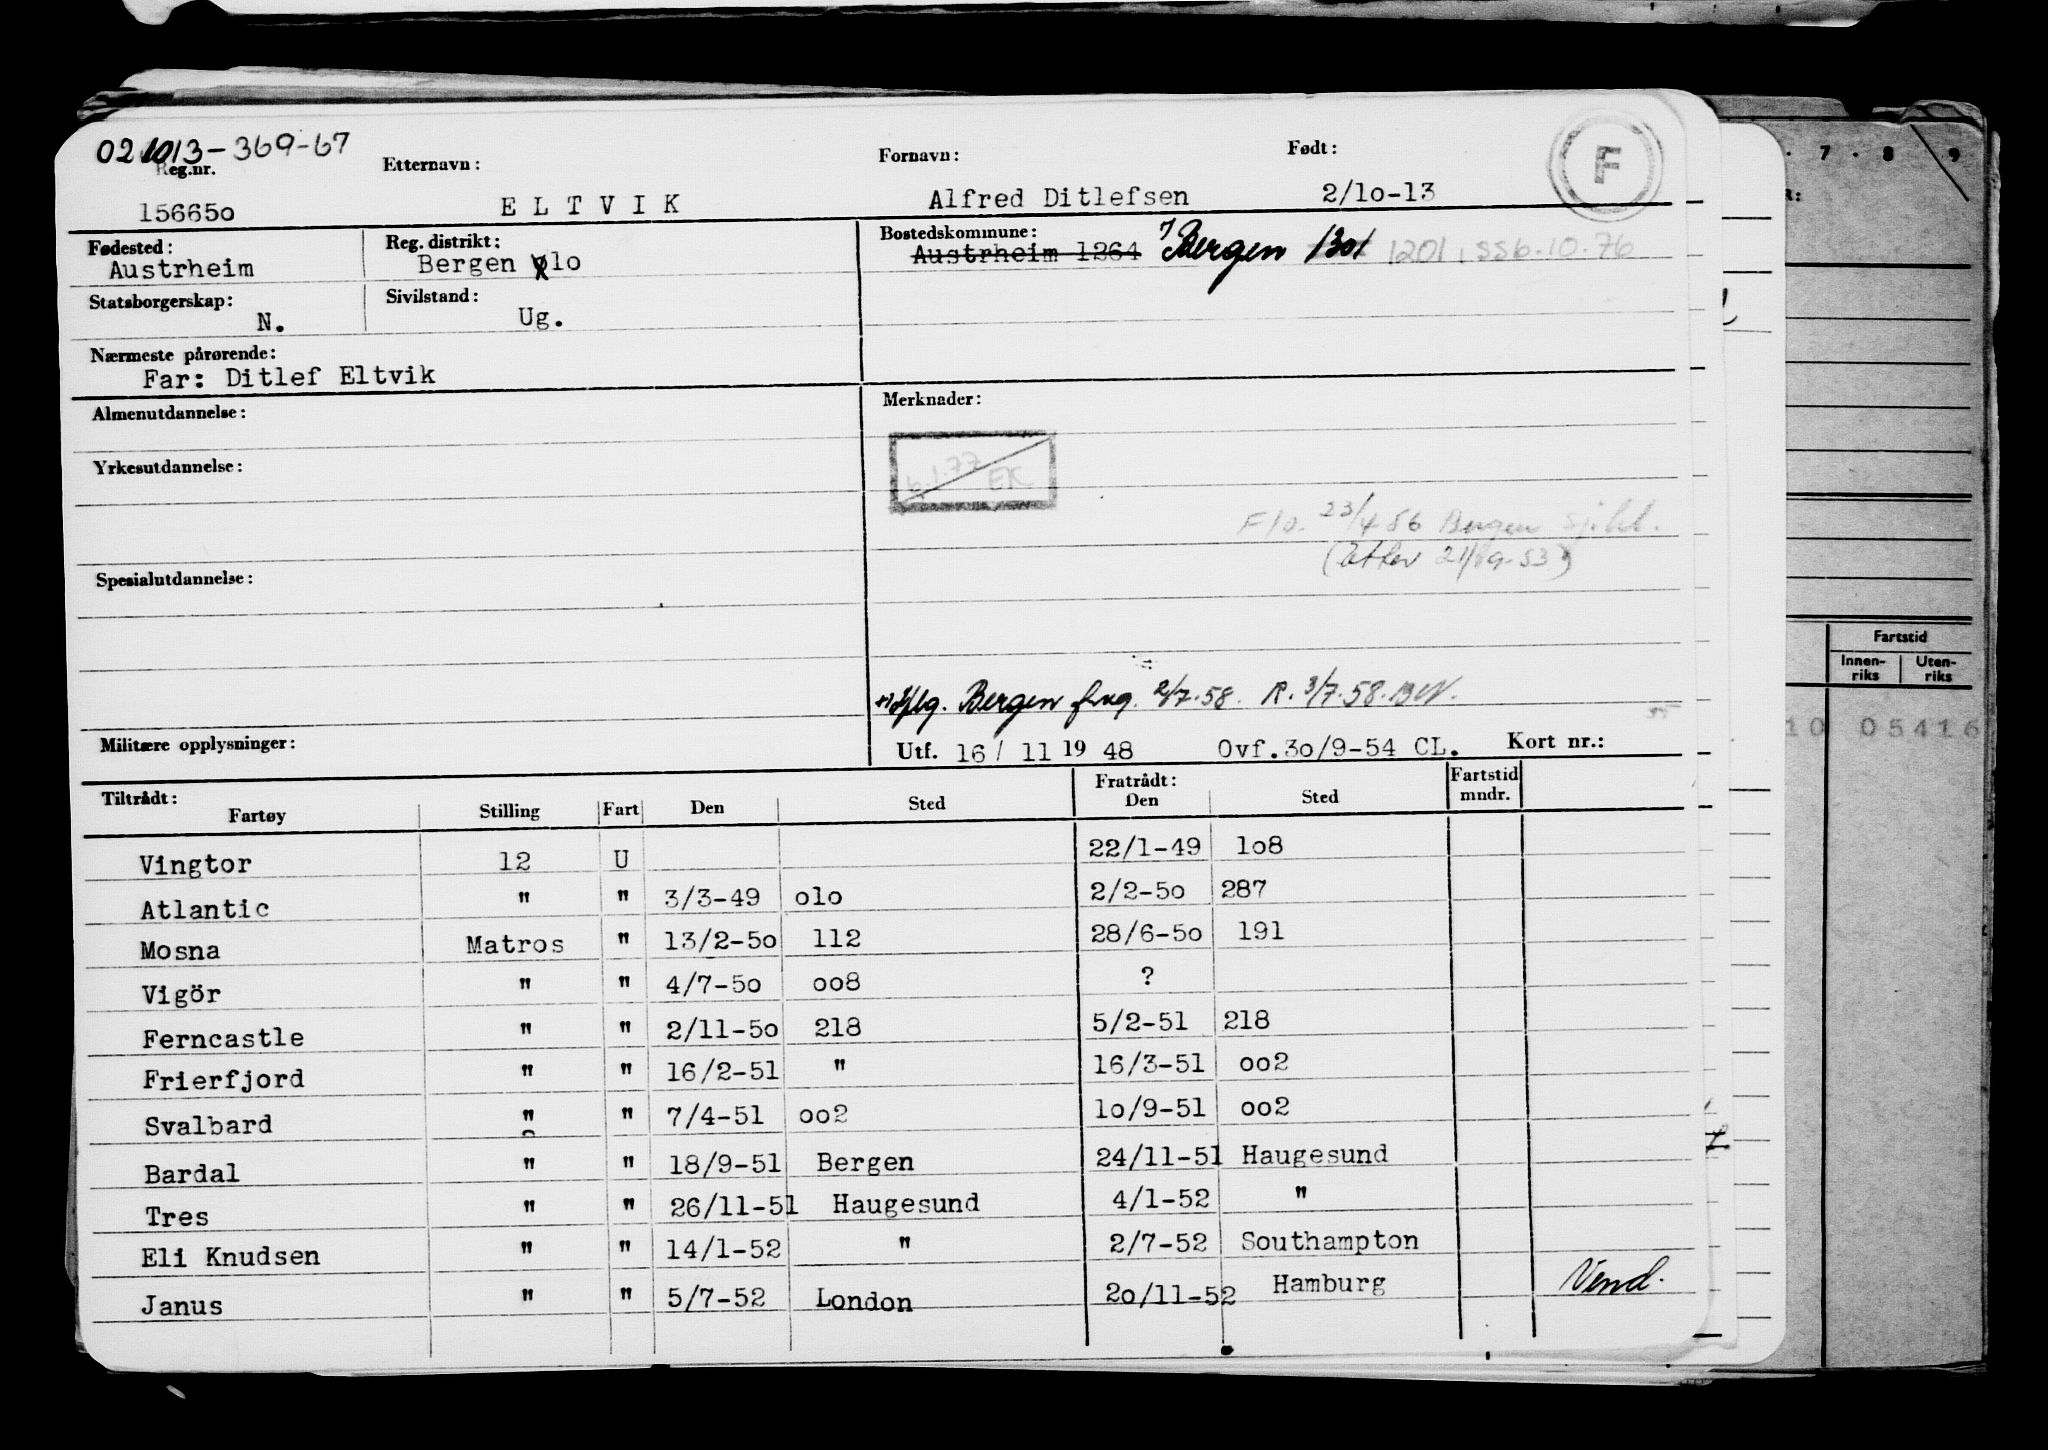 021013-369-67
Reg.nr. Etternavn: Fornavn: Født: F
156650 E L T V I K Alfred Ditlefsen 2/10-13
Fødested: Reg. distrikt: Bostedskommune:
Austrheim Bergen olo Austrheim 1264 Bergen 1301 1201
Statsborgerskap: Sivilstand:
N. Ug.
Nærmeste pårørende:
Far: Ditlef Eltvik
Almenutdannelse: Merknader:
Yrkesutdannelse: 6.1.77 EK
23/4 56 Bergen
Spesialutdannelse:
Bergen 2/7.58. R. 3/7.58.
Militære opplysninger: Utf. 16/ 11 19 48 Ovf.3o/9-54 CL. Kort nr.:
Tiltrådt: Fratrådt: Fartstid
Fartøy Stilling Fart Den Sted Den Sted mndr.
Vingtor 12 U 22/1-49 lo8
Atlantic " " 3/3-49 olo 2/2-5o 287
Mosna Matros " 13/2-5o 112 28/6-5o 191
Vigör " " 4/7-5o oo8 ?
Ferncastle " " 2/11-5o 218 5/2-51 218
Frierfjord " " 16/2-51 " 16/3-51 oo2
Svalbard " " 7/4-51 oo2 lo/9-51 oo2
Bardal " " 18/9-51 Bergen 24/11-51 Haugesund
Tres " " 26/11-51 Haugesund 4/1-52 "
Eli Knudsen " " 14/1-52 " 2/7-52 Southampton
Janus " " 5/7-52 London 2o/11-52 Hamburg Vend.
. 7 . 8 9
R:
Fartstid
Innen-riks Uten-riks
10 05416